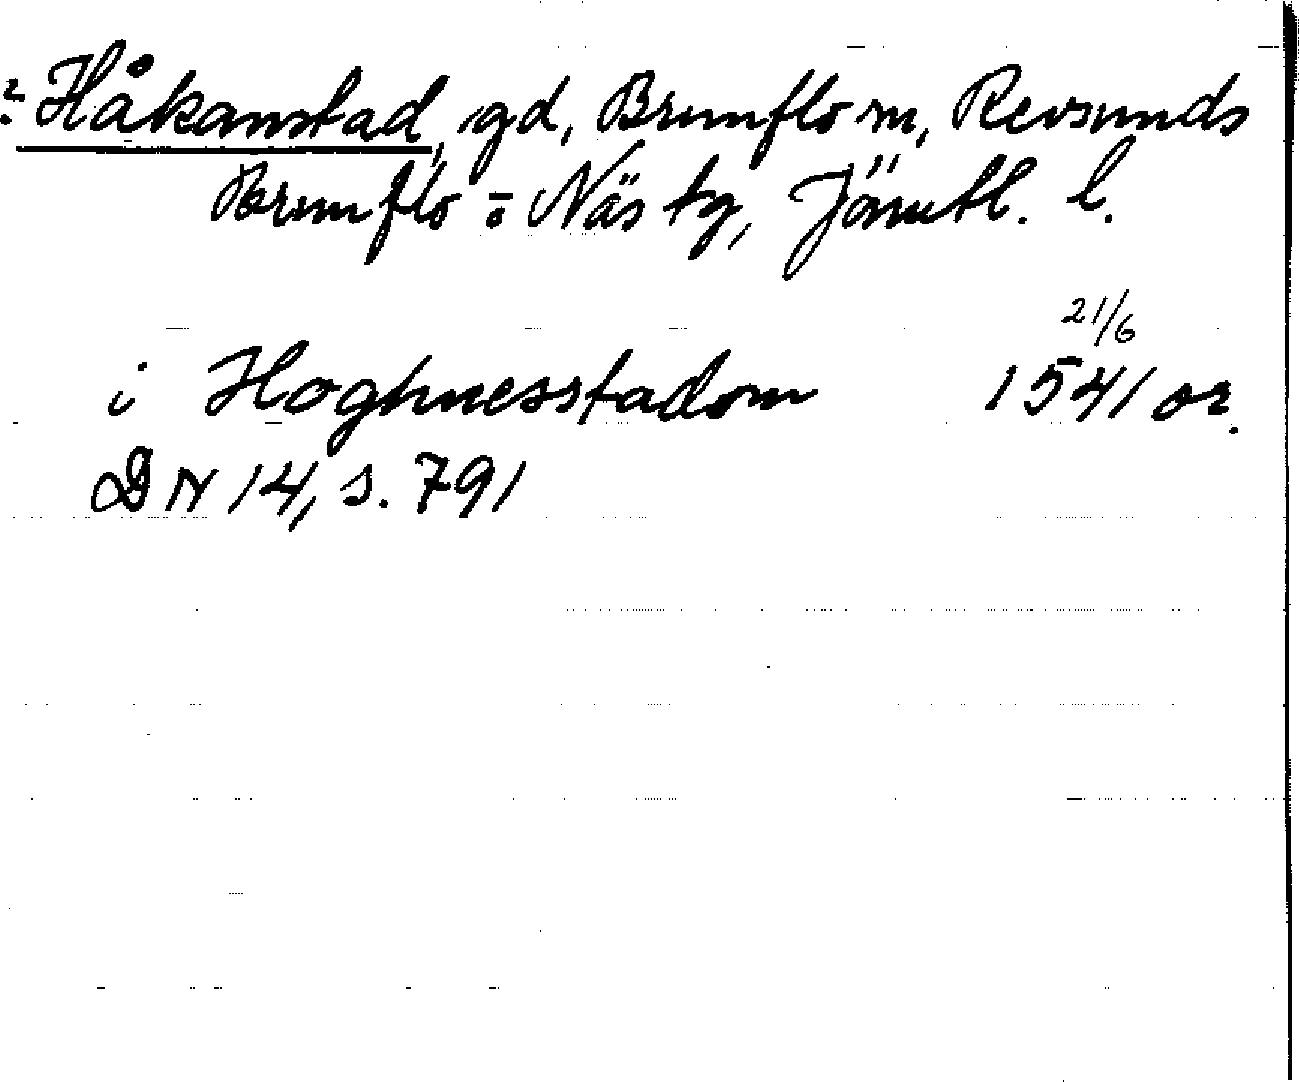 ? Håkanstad, gd, Brunflo sn, Revsunds
Brunflo o Näs tg, Jämtl. l.
21/6
i Hoghnesstadom 1541 or.
DN 14, s. 791